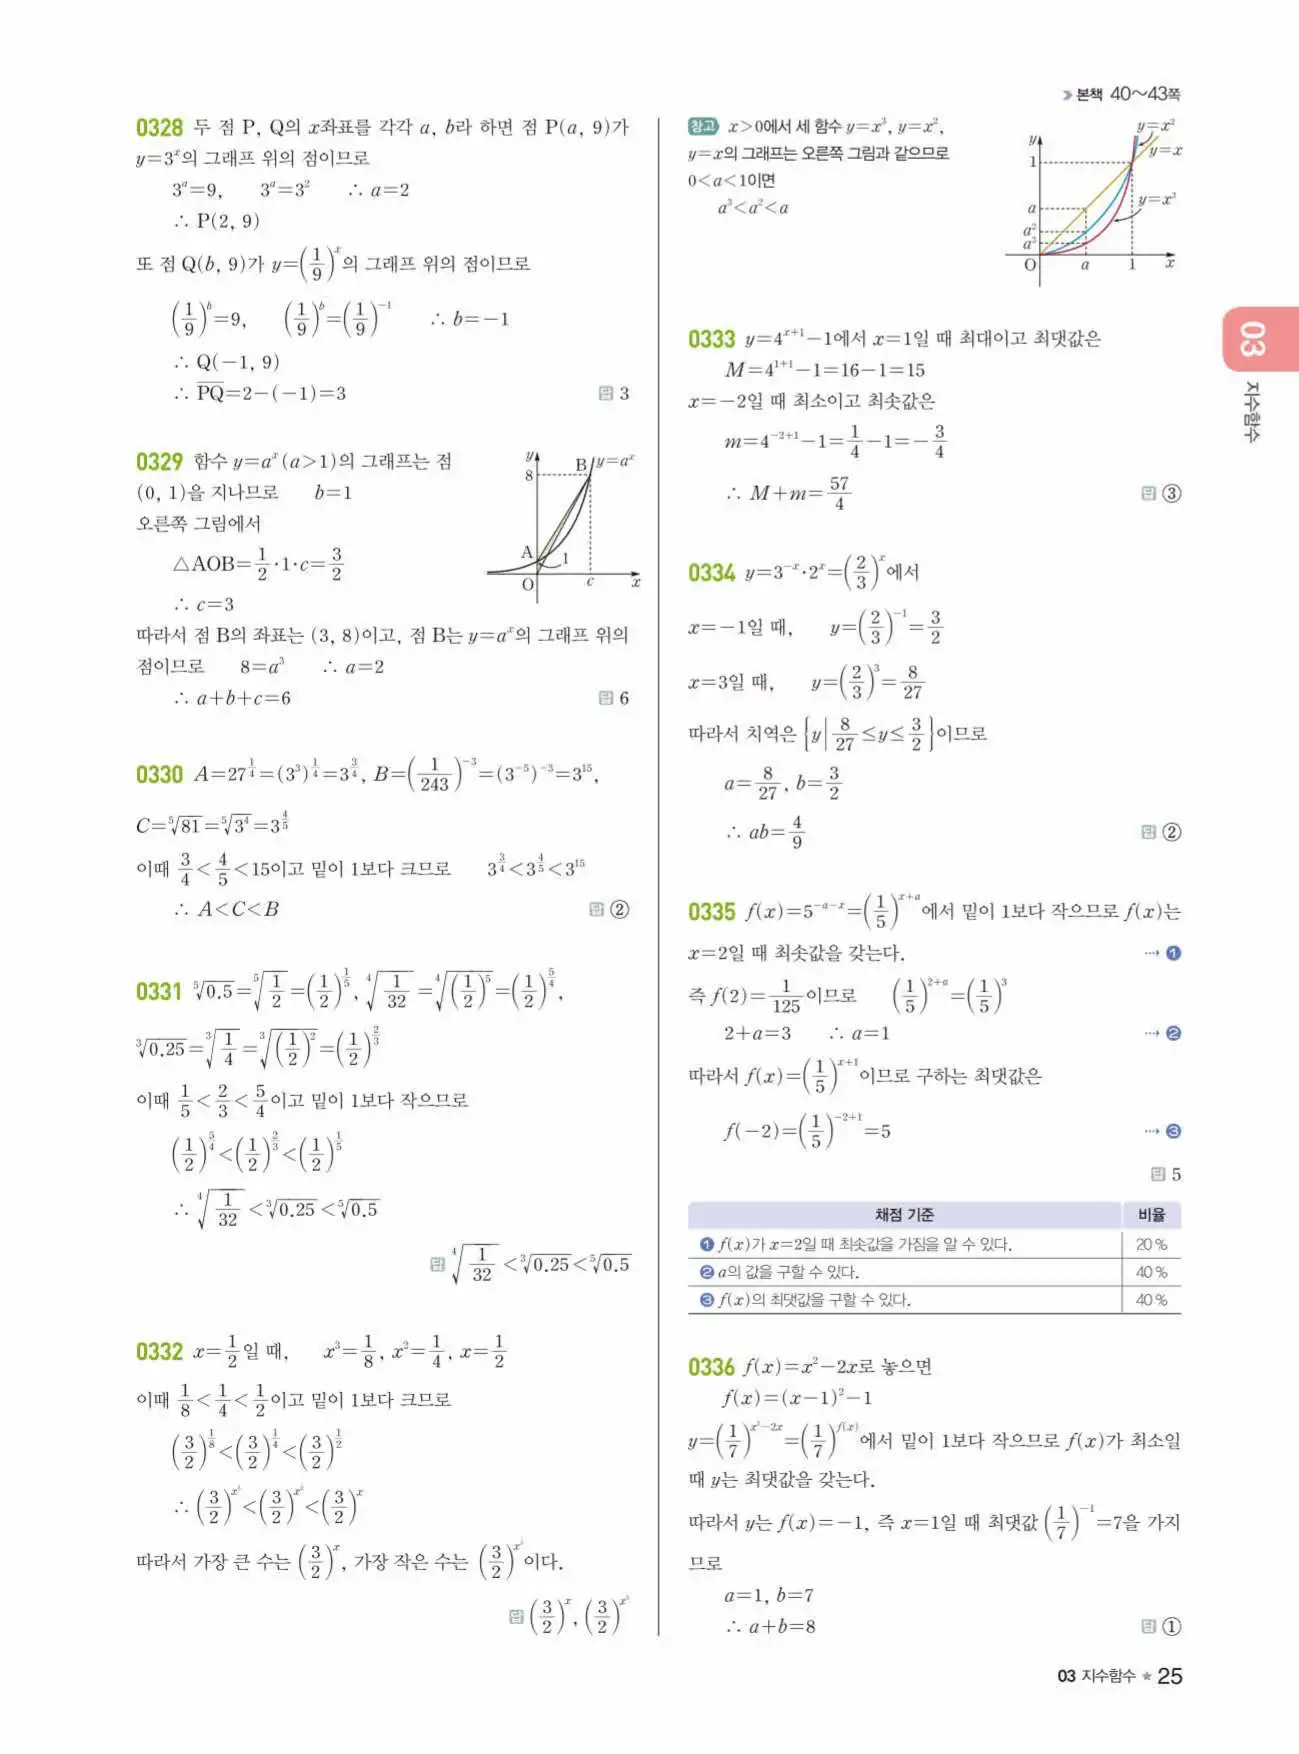 본책 40~43쪽
0328 두 점 P, Q의 x좌표를 각각 a, b라 하면 점 P(a, 9)가
y=3^x의 그래프 위의 점이므로
3^a=9, 3^a=3^2 ∴ a=2
∴ P(2, 9)
또 점 Q(b, 9)가 y=(1/9)^x의 그래프 위의 점이므로
(1/9)^b=9, (1/9)^b=(1/9)^-1 ∴ b=-1
∴ Q(-1, 9)
∴ PQ=2-(-1)=3 답 3
0329 함수 y=a^x (a>1)의 그래프는 점
(0, 1)을 지나므로 b=1
오른쪽 그림에서
△AOB=1/2·1·c=3/2
∴ c=3
y 8 B y=a^x A 1 O c x
따라서 점 B의 좌표는 (3, 8)이고, 점 B는 y=a^x의 그래프 위의
점이므로 8=a^3 ∴ a=2
∴ a+b+c=6 답 6
0330 A=27^(1/4)=(3^3)^(1/4)=3^(3/4), B=(1/243)^-3=(3^-5)^-3=3^15,
C=⁵√81=⁵√3^4=3^(4/5)
이때 3/4<4/5<15이고 밑이 1보다 크므로 3^(3/4)<3^(4/5)<3^15
∴ A<C<B 답 ②
0331 ⁵√0.5=⁵√(1/2)=(1/2)^(1/5), ⁴√(1/32)=⁴√((1/2)^5)=(1/2)^(5/4),
³√0.25=³√(1/4)=³√((1/2)^2)=(1/2)^(2/3)
이때 1/5<2/3<5/4이고 밑이 1보다 작으므로
(1/2)^(5/4)<(1/2)^(2/3)<(1/2)^(1/5)
∴ ⁴√(1/32)<³√0.25<⁵√0.5
답 ⁴√(1/32)<³√0.25<⁵√0.5
0332 x=1/2일 때, x^3=1/8, x^2=1/4, x=1/2
이때 1/8<1/4<1/2이고 밑이 1보다 크므로
(3/2)^(1/8)<(3/2)^(1/4)<(3/2)^(1/2)
∴ (3/2)^(x^3)<(3/2)^(x^2)<(3/2)^x
따라서 가장 큰 수는 (3/2)^x, 가장 작은 수는 (3/2)^(x^3)이다.
답 (3/2)^x, (3/2)^(x^3)
참고 x>0에서 세 함수 y=x^3, y=x^2,
y=x의 그래프는 오른쪽 그림과 같으므로
0<a<1이면
a^3<a^2<a
y y=x^2 1 y=x a y=x^3 a^2 a^3 O a 1 x
0333 y=4^(x+1)-1에서 x=1일 때 최대이고 최댓값은
M=4^(1+1)-1=16-1=15
x=-2일 때 최소이고 최솟값은
m=4^(-2+1)-1=1/4-1=-3/4
∴ M+m=57/4 답 ③
0334 y=3^-x·2^x=(2/3)^x에서
x=-1일 때, y=(2/3)^-1=3/2
x=3일 때, y=(2/3)^3=8/27
따라서 치역은 {y|8/27≤y≤3/2}이므로
a=8/27, b=3/2
∴ ab=4/9 답 ②
0335 f(x)=5^(-a-x)=(1/5)^(x+a)에서 밑이 1보다 작으므로 f(x)는
x=2일 때 최솟값을 갖는다. ⋯→ ❶
즉 f(2)=1/125이므로 (1/5)^(2+a)=(1/5)^3
2+a=3 ∴ a=1 ⋯→ ❷
따라서 f(x)=(1/5)^(x+1)이므로 구하는 최댓값은
f(-2)=(1/5)^(-2+1)=5 ⋯→ ❸
답 5
채점 기준 비율
❶ f(x)가 x=2일 때 최솟값을 가짐을 알 수 있다. 20 %
❷ a의 값을 구할 수 있다. 40 %
❸ f(x)의 최댓값을 구할 수 있다. 40 %
0336 f(x)=x^2-2x로 놓으면
f(x)=(x-1)^2-1
y=(1/7)^(x^2-2x)=(1/7)^f(x)에서 밑이 1보다 작으므로 f(x)가 최소일
때 y는 최댓값을 갖는다.
따라서 y는 f(x)=-1, 즉 x=1일 때 최댓값 (1/7)^-1=7을 가지
므로
a=1, b=7
∴ a+b=8 답 ①
03 지수함수
03 지수함수 ★ 25